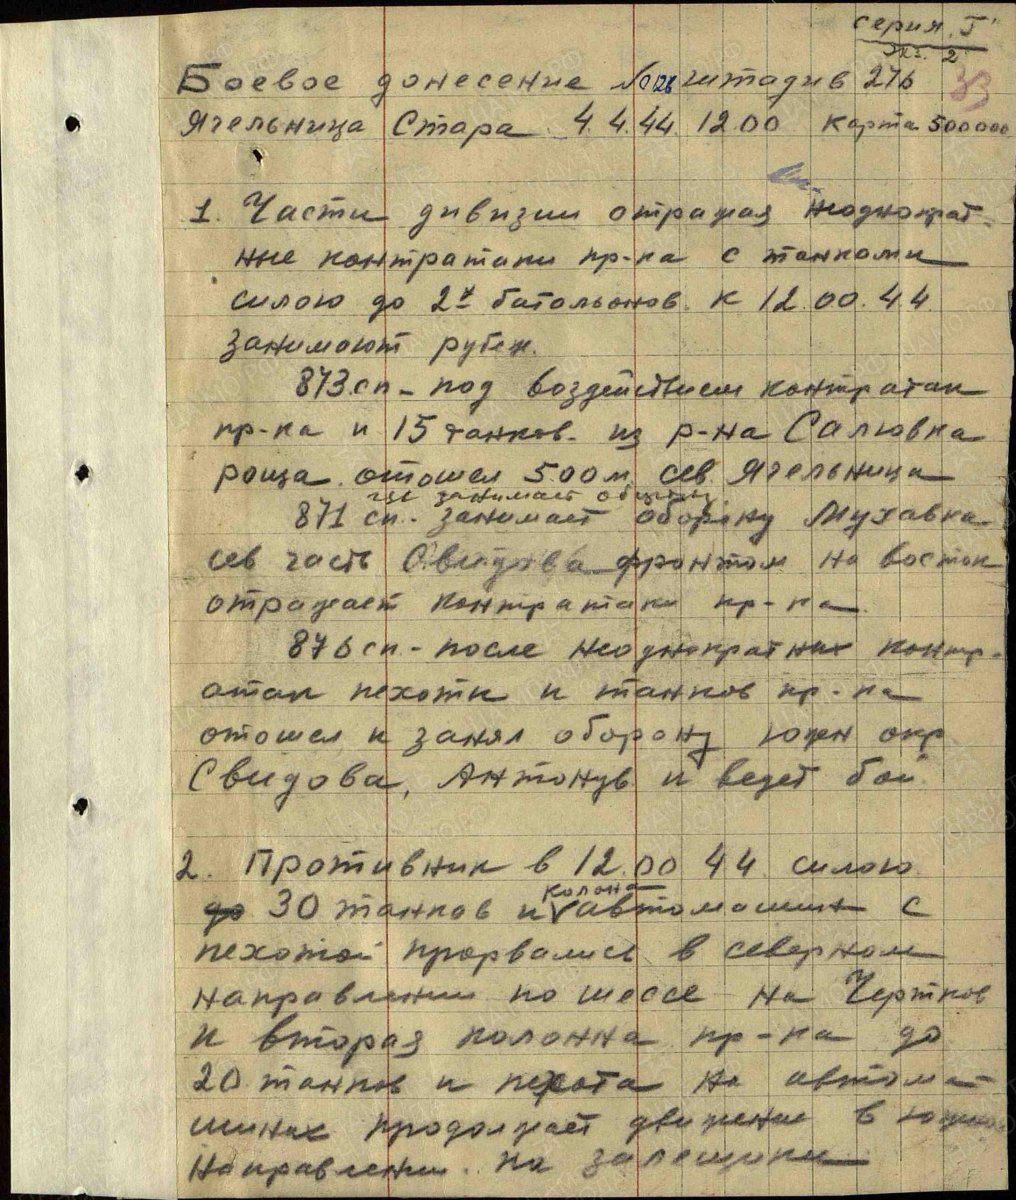 серия Г
экз. 2
33
Боевое донесение № 026 штадив 276
Ягельница Стара 4.4.44. 12.00 карта 500000
1. Части дивизии отражая неоднократ-
ные контратаки пр-ка с танками
силою до 2х батальонов к 12.00 4.4.
занимают рубеж.
873 сп - под воздействием контратак
пр-ка и 15 танков из р-на Салювка
роща отошел 500 м. сев. Ягельница
где занимает оборону.
871 сп - занимает оборону Мухавка
сев часть Свидова фронтом на восток
отражает контратаки пр-ка.
876 сп - после неоднократных контр-
атак пехоты и танков пр-ка
отошел и занял оборону южн окр
Свидова, Антонув и ведет бой.
2. Противник в 12.00 4.4 силою
до 30 танков и колона автомашин с
пехотой прорвались в северном
направлении по шоссе на Чертков
и вторая колонна пр-ка до
20 танков и пехота на автома-
шинах продолжает движение в южном
направлении на Залещики